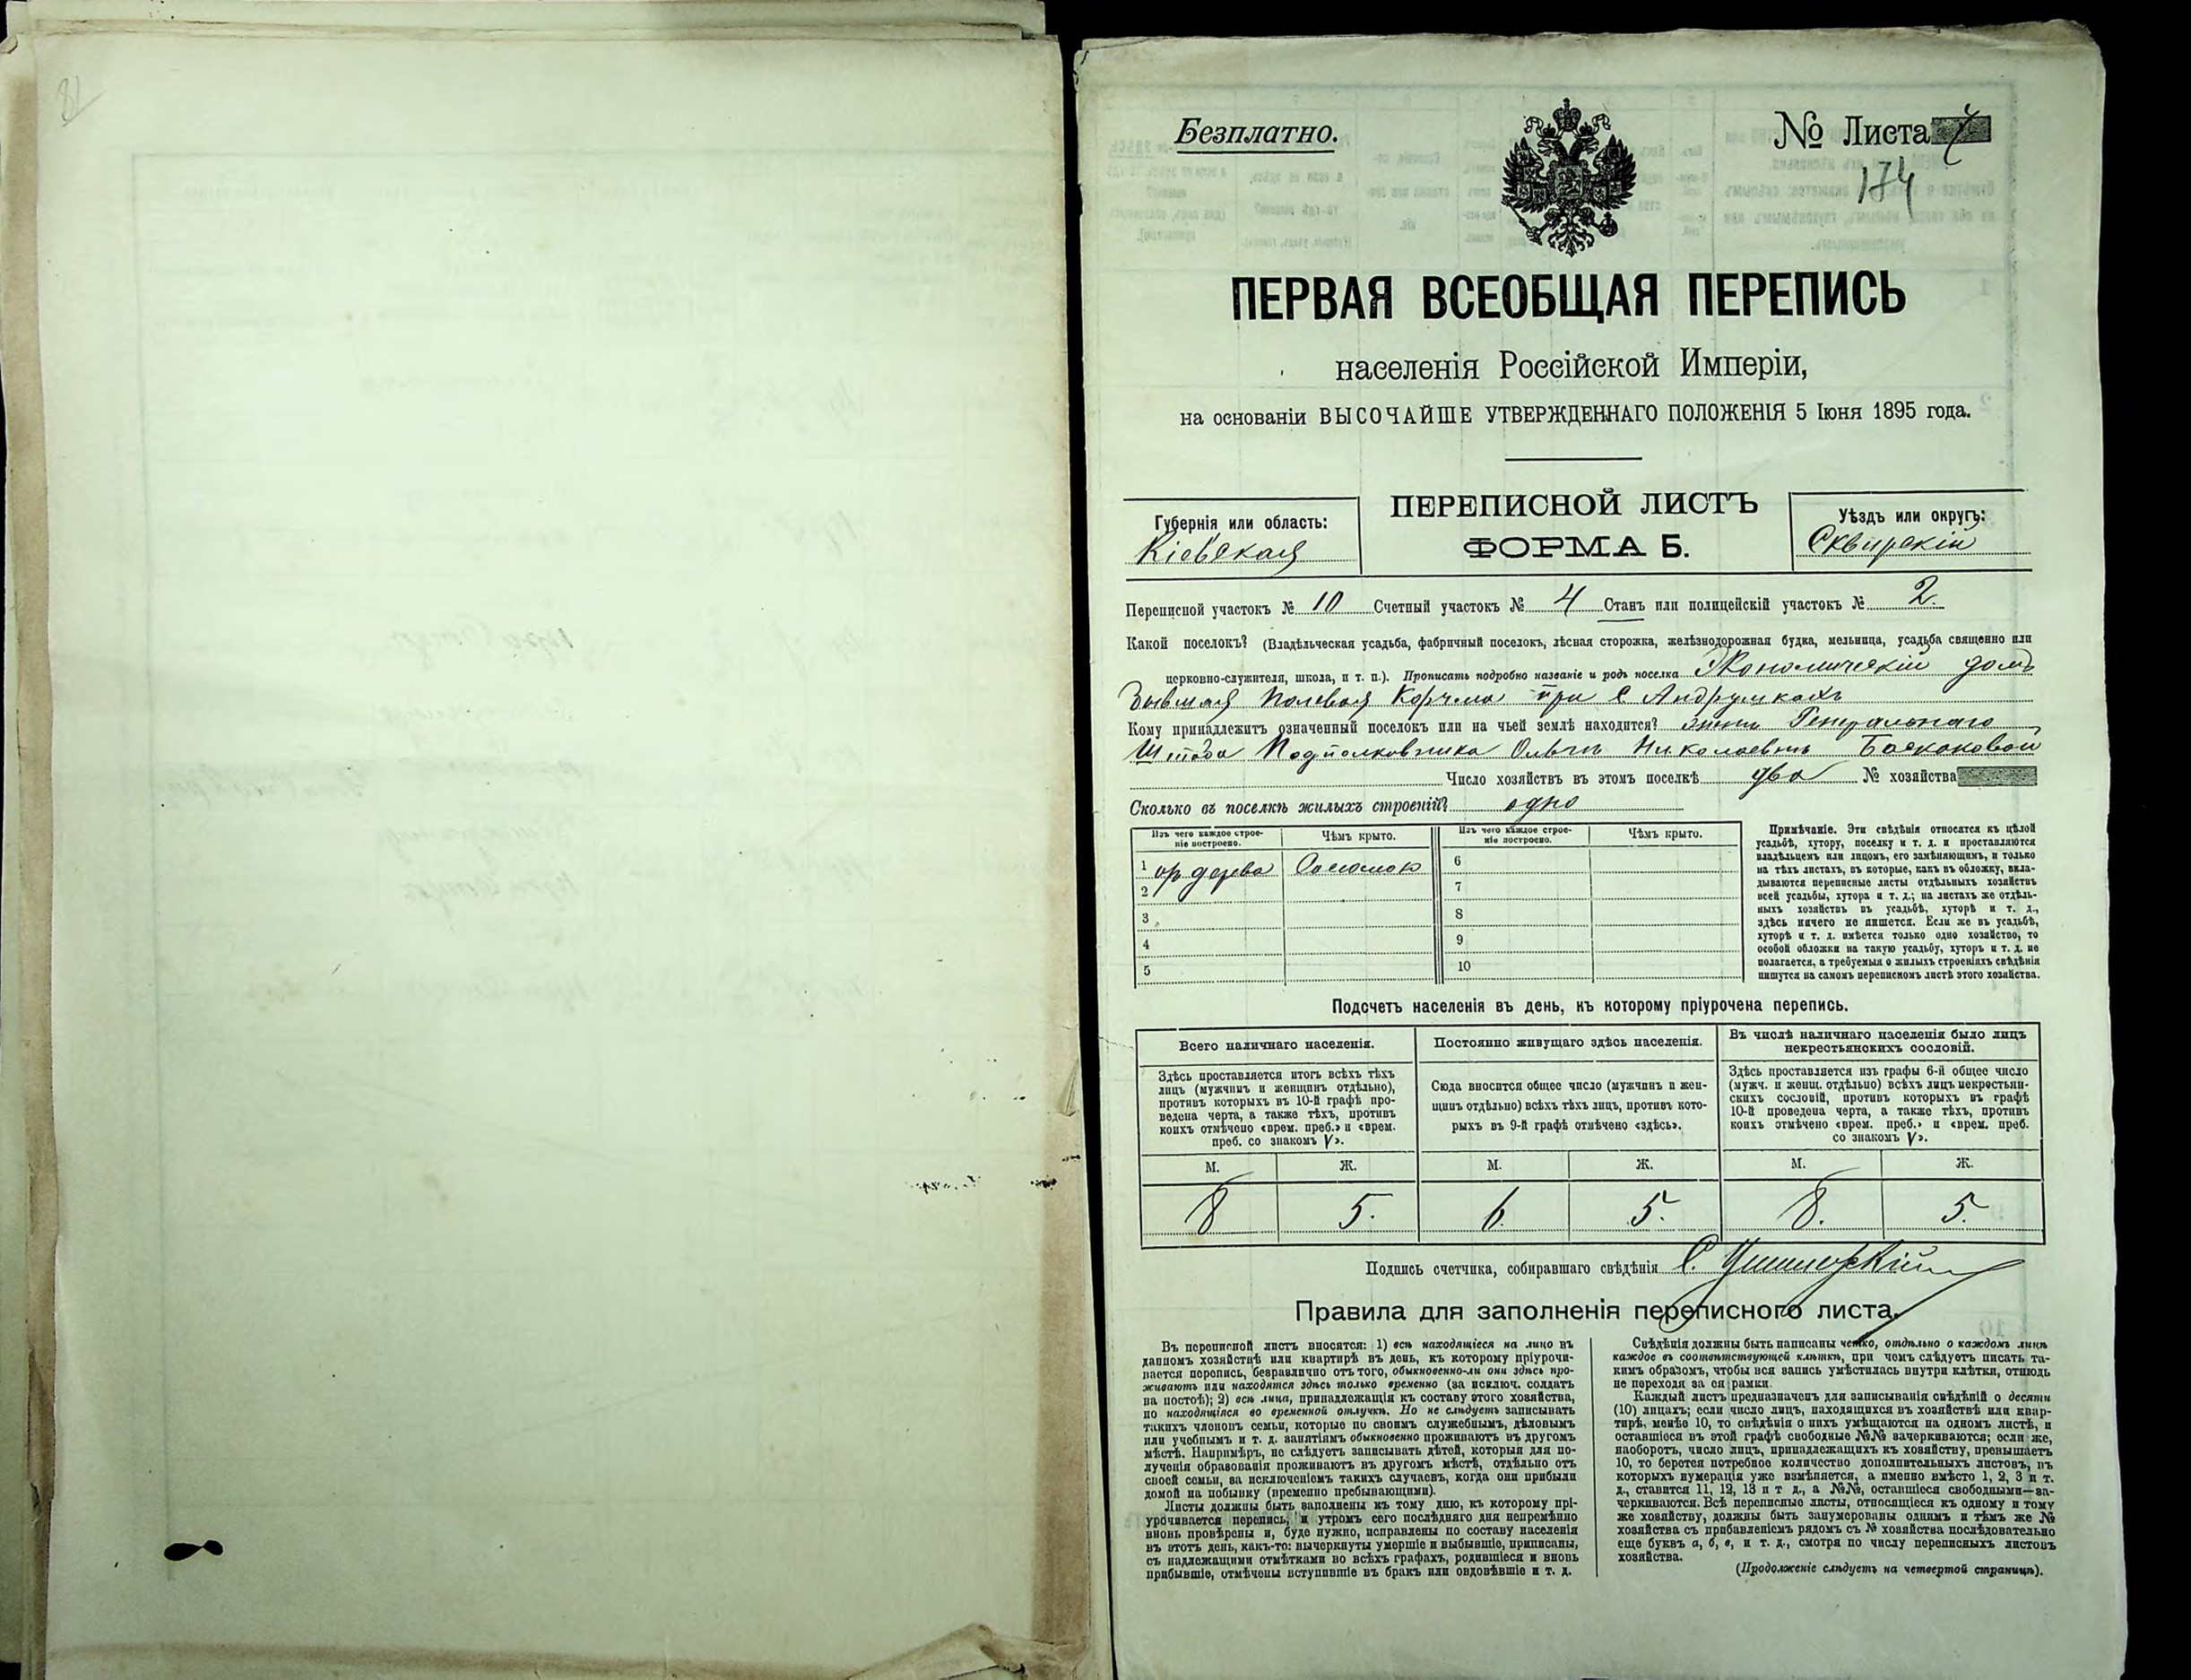 Безплатно.
№ Листа 7
174
ПЕРВАЯ ВСЕОБЩАЯ ПЕРЕПИСЬ
населенія Россійской Имперіи,
на основаніи ВЫСОЧАЙШЕ УТВЕРЖДЕННАГО ПОЛОЖЕНІЯ 5 Іюня 1895 года.
Губернія или область:
Кіевская
ПЕРЕПИСНОЙ ЛИСТЪ
ФОРМА Б.
Уѣздъ или округъ:
Сквирскій
Переписной участокъ № 10 Счетный участокъ № 4 Станъ или полицейскій участокъ № 2.
Какой поселокъ? (Владѣльческая усадьба, фабричный поселокъ, лѣсная сторожка, желѣзнодорожная будка, мельница, усадьба священно или
церковно-служителя, школа, и т. п.). Прописать подробно названіе и родъ поселка Экономическій домъ
Бывшая Полевая Корчма при с Андрушкахъ
Кому принадлежитъ означенный поселокъ или на чьей землѣ находится? жены Генеральнаго
Штаба Подполковника Ольги Николаевны Баскаковой
Число хозяйствъ въ этомъ поселкѣ два № хозяйства
Сколько въ поселкѣ жилыхъ строеній? одно
Изъ чего каждое строе-
ніе построено.
Чѣмъ крыто.
Изъ чего каждое строе-
ніе построено.
Чѣмъ крыто.
1 ... дерева Соломою
2
3
4
5
6
7
8
9
10
Примѣчаніе. Эти свѣдѣнія относятся къ цѣлой
усадьбѣ, хутору, поселку и т. д. и проставляются
владѣльцемъ или лицомъ, его замѣняющимъ, и только
на тѣхъ листахъ, въ которые, какъ въ обложку, вкла-
дываются переписные листы отдѣльныхъ хозяйствъ
всей усадьбы, хутора и т. д.; на листахъ же отдѣль-
ныхъ хозяйствъ въ усадьбѣ, хуторѣ и т. д.,
здѣсь ничего не пишется. Если же въ усадьбѣ,
хуторѣ и т. д. имѣется только одно хозяйство, то
особой обложки на такую усадьбу, хуторъ и т. д. не
полагается, а требуемыя о жилыхъ строеніяхъ свѣдѣнія
пишутся на самомъ переписномъ листѣ этого хозяйства.
Подсчетъ населенія въ день, къ которому пріурочена перепись.
Всего наличнаго населенія.
Здѣсь проставляется итогъ всѣхъ тѣхъ
лицъ (мужчинъ и женщинъ отдѣльно),
противъ которыхъ въ 10-й графѣ про-
ведена черта, а также тѣхъ, противъ
коихъ отмѣчено «врем. преб.» и «врем.
преб. со знакомъ V».
Постоянно живущаго здѣсь населенія.
Сюда вносится общее число (мужчинъ и жен-
щинъ отдѣльно) всѣхъ тѣхъ лицъ, противъ кото-
рыхъ въ 9-й графѣ отмѣчено «здѣсь».
Въ числѣ наличнаго населенія было лицъ
некрестьянскихъ сословій.
Здѣсь проставляется изъ графы 6-й общее число
(мужч. и женщ. отдѣльно) всѣхъ лицъ некрестьян-
скихъ сословій, противъ которыхъ въ графѣ
10-й проведена черта, а также тѣхъ, противъ
коихъ отмѣчено «врем. преб.» и «врем. преб.
со знакомъ V».
М. Ж. М. Ж. М. Ж.
8 5. 6. 5. 8. 5.
Подпись счетчика, собиравшаго свѣдѣнія С.
Правила для заполненія переписного листа.
Въ переписной листъ вносятся: 1) всѣ находящіеся на лицо въ
данномъ хозяйствѣ или квартирѣ въ день, къ которому пріурочи-
вается перепись, безразлично отъ того, обыкновенно-ли они здѣсь про-
живаютъ или находятся здѣсь только временно (за исключ. солдатъ
на постоѣ); 2) всѣ лица, принадлежащія къ составу этого хозяйства,
но находящіяся во временной отлучкѣ. Но не слѣдуетъ записывать
такихъ членовъ семьи, которые по своимъ служебнымъ, дѣловымъ
или учебнымъ и т. д. занятіямъ обыкновенно проживаютъ въ другомъ
мѣстѣ. Напримѣръ, не слѣдуетъ записывать дѣтей, которыя для по-
лученія образованія проживаютъ въ другомъ мѣстѣ, отдѣльно отъ
своей семьи, за исключеніемъ такихъ случаевъ, когда они прибыли
домой на побывку (временно пребывающими).
Листы должны быть заполнены къ тому дню, къ которому прі-
урочивается перепись, и утромъ сего послѣдняго дня непремѣнно
вновь провѣрены и, буде нужно, исправлены по составу населенія
въ этотъ день, какъ-то: вычеркнуты умершіе и выбывшіе, приписаны,
съ надлежащими отмѣтками во всѣхъ графахъ, родившіеся и вновь
прибывшіе, отмѣчены вступившіе въ бракъ или овдовѣвшіе и т. д.
Свѣдѣнія должны быть написаны четко, отдѣльно о каждомъ лицѣ
каждое въ соотвѣтствующей клѣткѣ, при чемъ слѣдуетъ писать та-
кимъ образомъ, чтобы вся запись умѣстилась внутри клѣтки, отнюдь
не переходя за ея рамки.
Каждый листъ предназначенъ для записыванія свѣдѣній о десяти
(10) лицахъ; если число лицъ, находящихся въ хозяйствѣ или квар-
тирѣ, менѣе 10, то свѣдѣнія о нихъ умѣщаются на одномъ листѣ, и
оставшіеся въ этой графѣ свободные №№ зачеркиваются; если же,
наоборотъ, число лицъ, принадлежащихъ къ хозяйству, превышаетъ
10, то берется потребное количество дополнительныхъ листовъ, въ
которыхъ нумерація уже измѣняется, а именно вмѣсто 1, 2, 3 и т.
д., ставится 11, 12, 13 и т д., а №№, оставшіеся свободными—за-
черкиваются. Всѣ переписные листы, относящіеся къ одному и тому
же хозяйству, должны быть занумерованы однимъ и тѣмъ же №
хозяйства съ прибавленіемъ рядомъ съ № хозяйства послѣдовательно
еще буквъ а, б, в, и т. д., смотря по числу переписныхъ листовъ
хозяйства.
(Продолженіе слѣдуетъ на четвертой страницѣ).